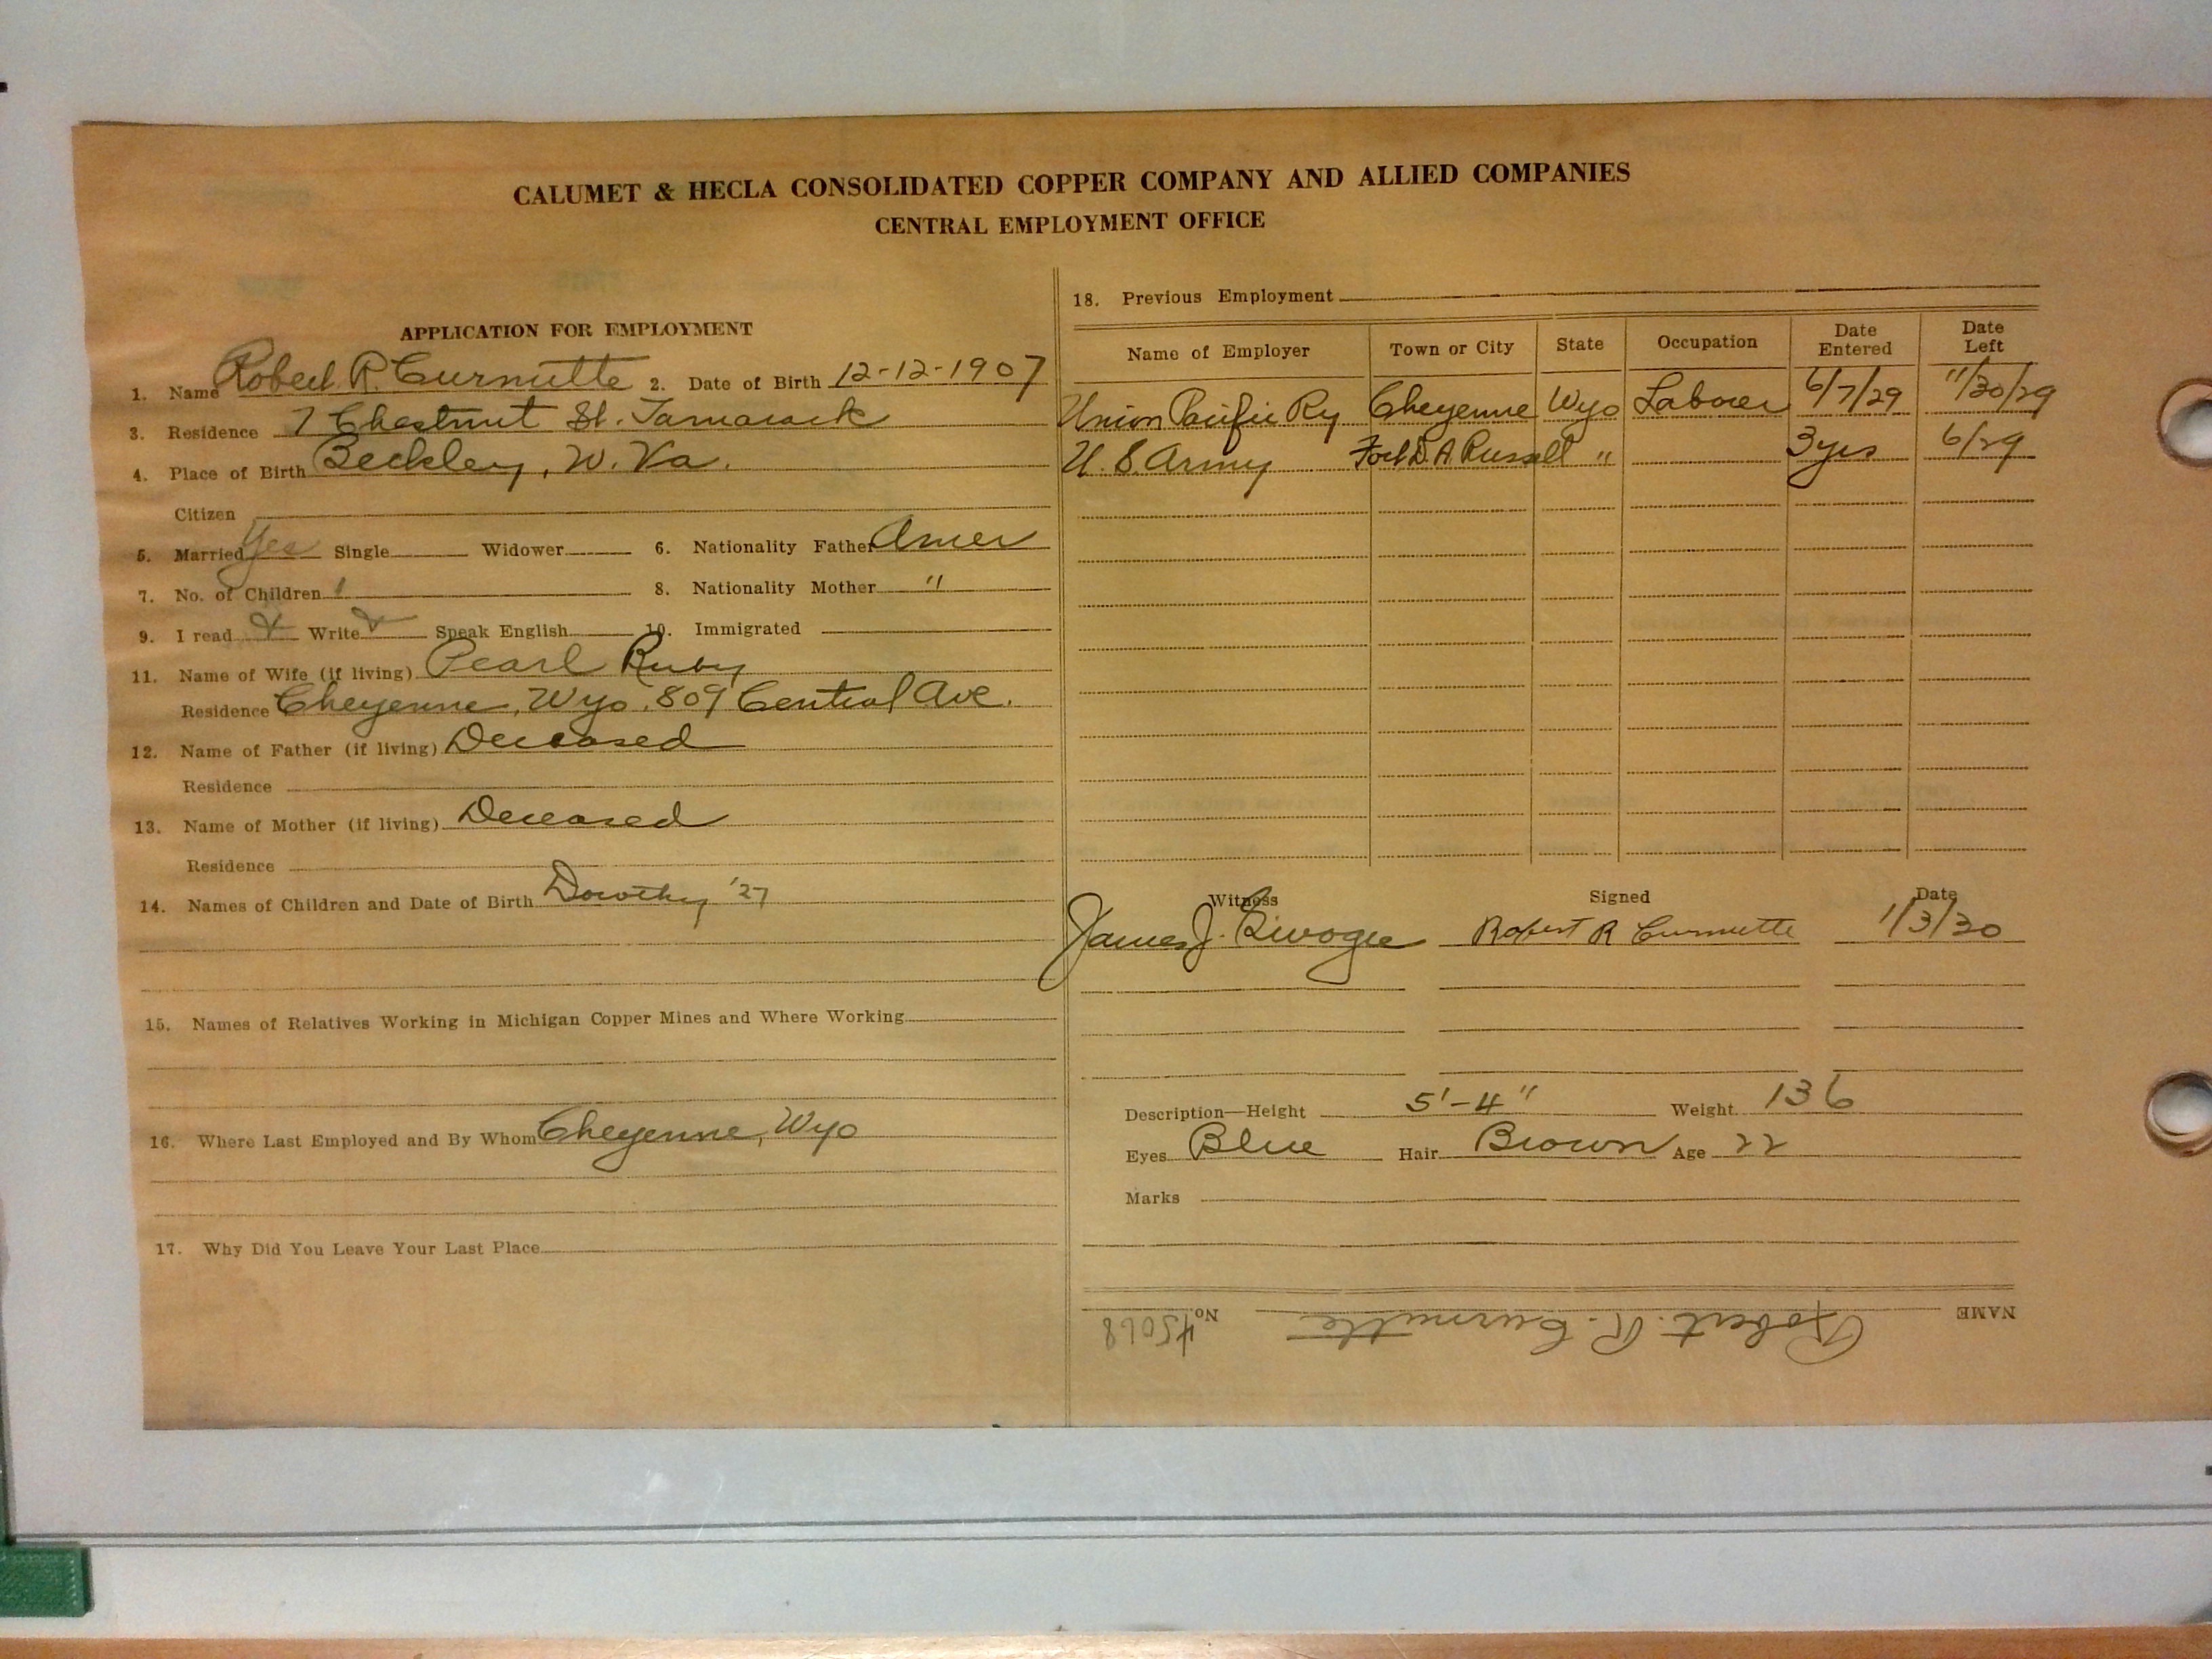 CALUMET & HECLA CONSOLIDATED COPPER COMPANY AND ALLIED COMPANIES
CENTRAL EMPLOYMENT OFFICE
APPLICATION FOR EMPLOYMENT
1. Name Robert R. Curnutte 2. Date of Birth 12-12-1907
3. Residence 7 Chestnut St. Tamarack
4. Place of Birth Beckley, W. Va.
Citizen
5. Married Yes Single Widower 6. Nationality Father Amer
7. No. of Children 1 8. Nationality Mother "
9. I read Write Speak English 10. Immigrated
11. Name of Wife (if living) Pearl Ruby
Residence Cheyenne, Wyo. 809 Central Ave.
12. Name of Father (if living) Deceased
Residence
13. Name of Mother (if living) Deceased
Residence
14. Names of Children and Date of Birth Dorothy '27
15. Names of Relatives Working in Michigan Copper Mines and Where Working
16. Where Last Employed and By Whom Cheyenne, Wyo
17. Why Did You Leave Your Last Place
18. Previous Employment
Name of Employer Town or City State Occupation Date Entered Date Left
Union Pacific Ry Cheyenne Wyo Laborer 6/7/29 11/30/29
U.S. Army Fort D.A. Russell " 3 yrs 6/29
Witness Signed Date
James J. Robert R Curnutte 1/3/30
Description—Height 5'-4" Weight 136
Eyes Blue Hair Brown Age 22
Marks
NAME Robert R. Curnutte No. 45068